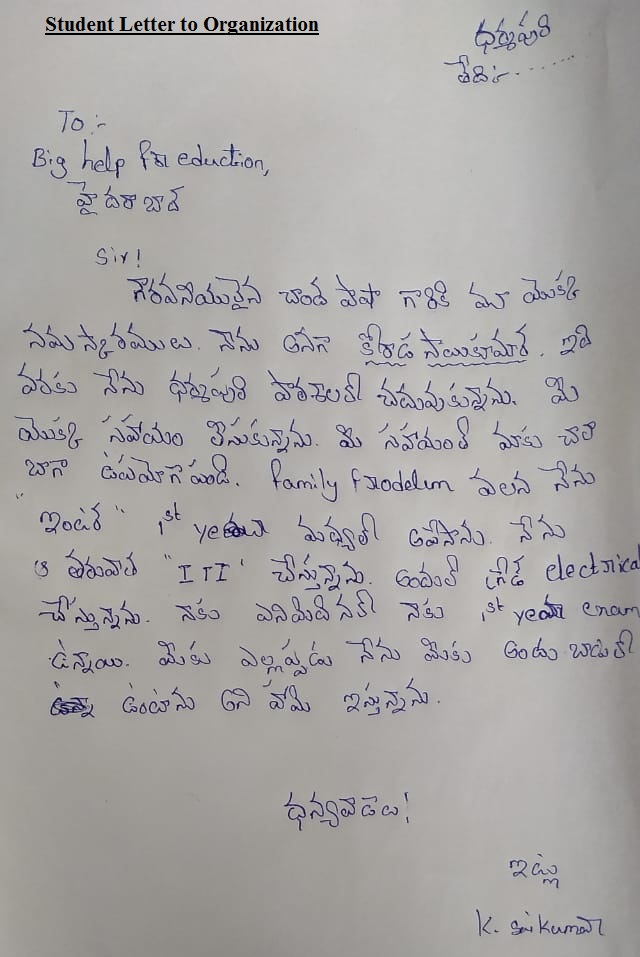 Student Letter to Organization
ధర్మపురి
తేది:-........
To :-
Big help for eduction,
హైదరాబాద్
Sir!
గౌరవనీయులైన చాంద పాషా గారికి మా యొక్క
నమస్కారములు. నేను అనగా సాయికుమార్. ఇది
వరకు నేను ధర్మపురి పాఠశాలలో చదువుకున్నాను. మీ
యొక్క సహాయం తీసుకున్నాను. మీ సహాయంతో మాకు చాలా
బాగా ఉపయోగపడింది. family వలన నేను
"ఇంటర్" 1st year మధ్యలో ఆపేసాను. నేను
తరువాత "ITI" చేస్తున్నాను. అందులో ట్రేడ్ electrical
చేస్తున్నాను. నాకు నాకు 1st year exam
ఉన్నాయి. మీకు ఎల్లప్పుడు నేను మీకు అందుబాటులో
ఉంటాను అని హామి ఇస్తున్నాను.
ధన్యవాదాలు!
ఇట్లు
K. saikumar